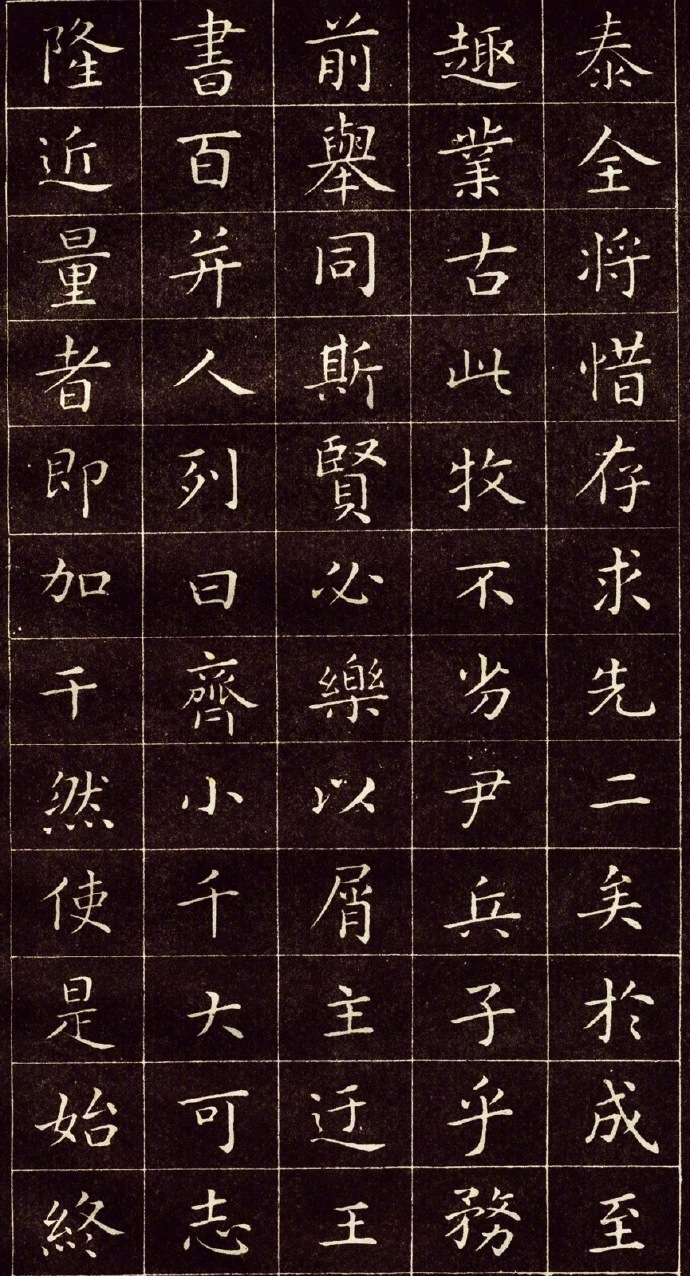 泰全将惜存求先二矣於成至
趣業古此牧不劣尹兵子乎務
前舉同斯賢必樂以屑主迂王
書百并人列曰齊小千大可志
隆近量者即加千然使是始終